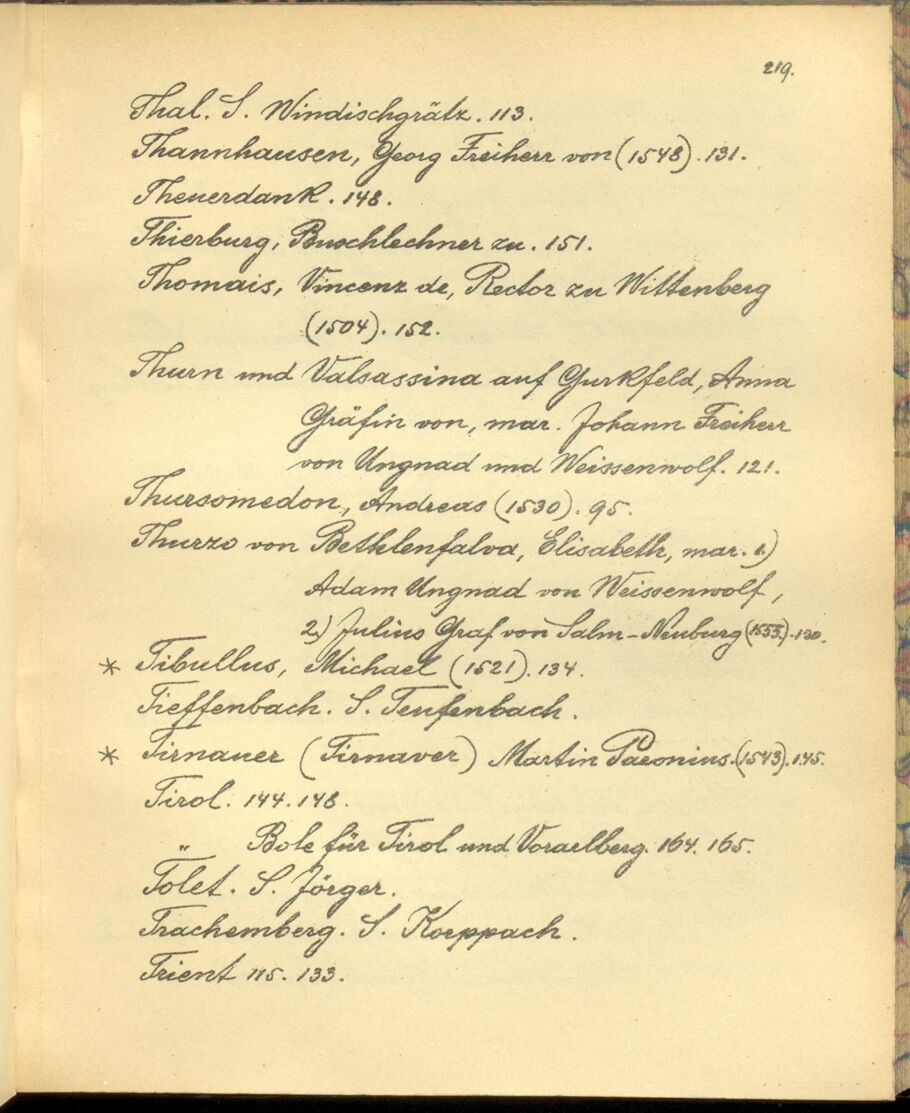 219.
Thal. S. Windischgrätz. 113.
Thannhausen, Georg Freiherr von (1548). 131.
Theuerdank. 148.
Thierburg, Buschlechner zu. 151.
Thomais, Vincenz de, Rector zu Wittenberg
(1504). 152.
Thurn und Valsassina auf Gurkfeld, Anna
Gräfin von, mar. Johann Freiherr
von Ungnad und Weissenwolf. 121.
Thursomedon, Andreas (1530). 95.
Thurzo von Bethlenfalva, Elisabeth, mar. 1.)
Adam Ungnad von Weissenwolf,
2.) Julius Graf von Salm-Neuburg (1555). 130.
* Tibullus, Michael (1521). 134.
Tieffenbach. S. Teufenbach.
* Tirnauer (Tirnaver) Martin Paeonius. (1543). 145.
Tirol. 144. 148.
" Bole für Tirol und Vorarlberg. 164. 165.
Tolet. S. Jörger.
Trachemberg. S. Korppach.
Trient 115. 133.